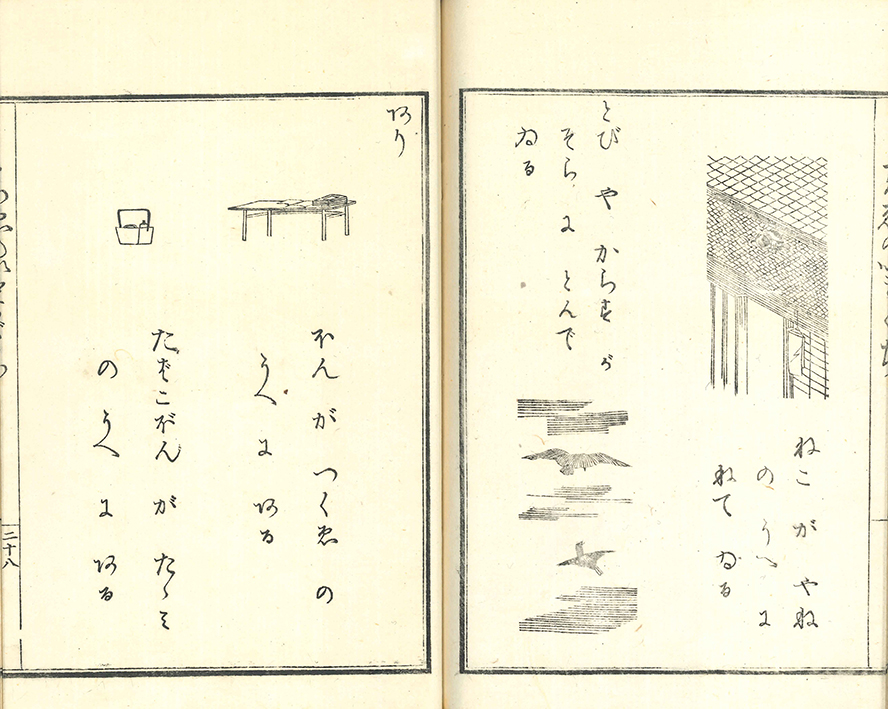 ねこ が やね
の うへ に
ねて ゐる
とび や からす が
そら に とんで
ゐる
あり
ほん が つくゑ の
うへ に ある
たばこぼん が たゝみ
の うへ に ある
二十八